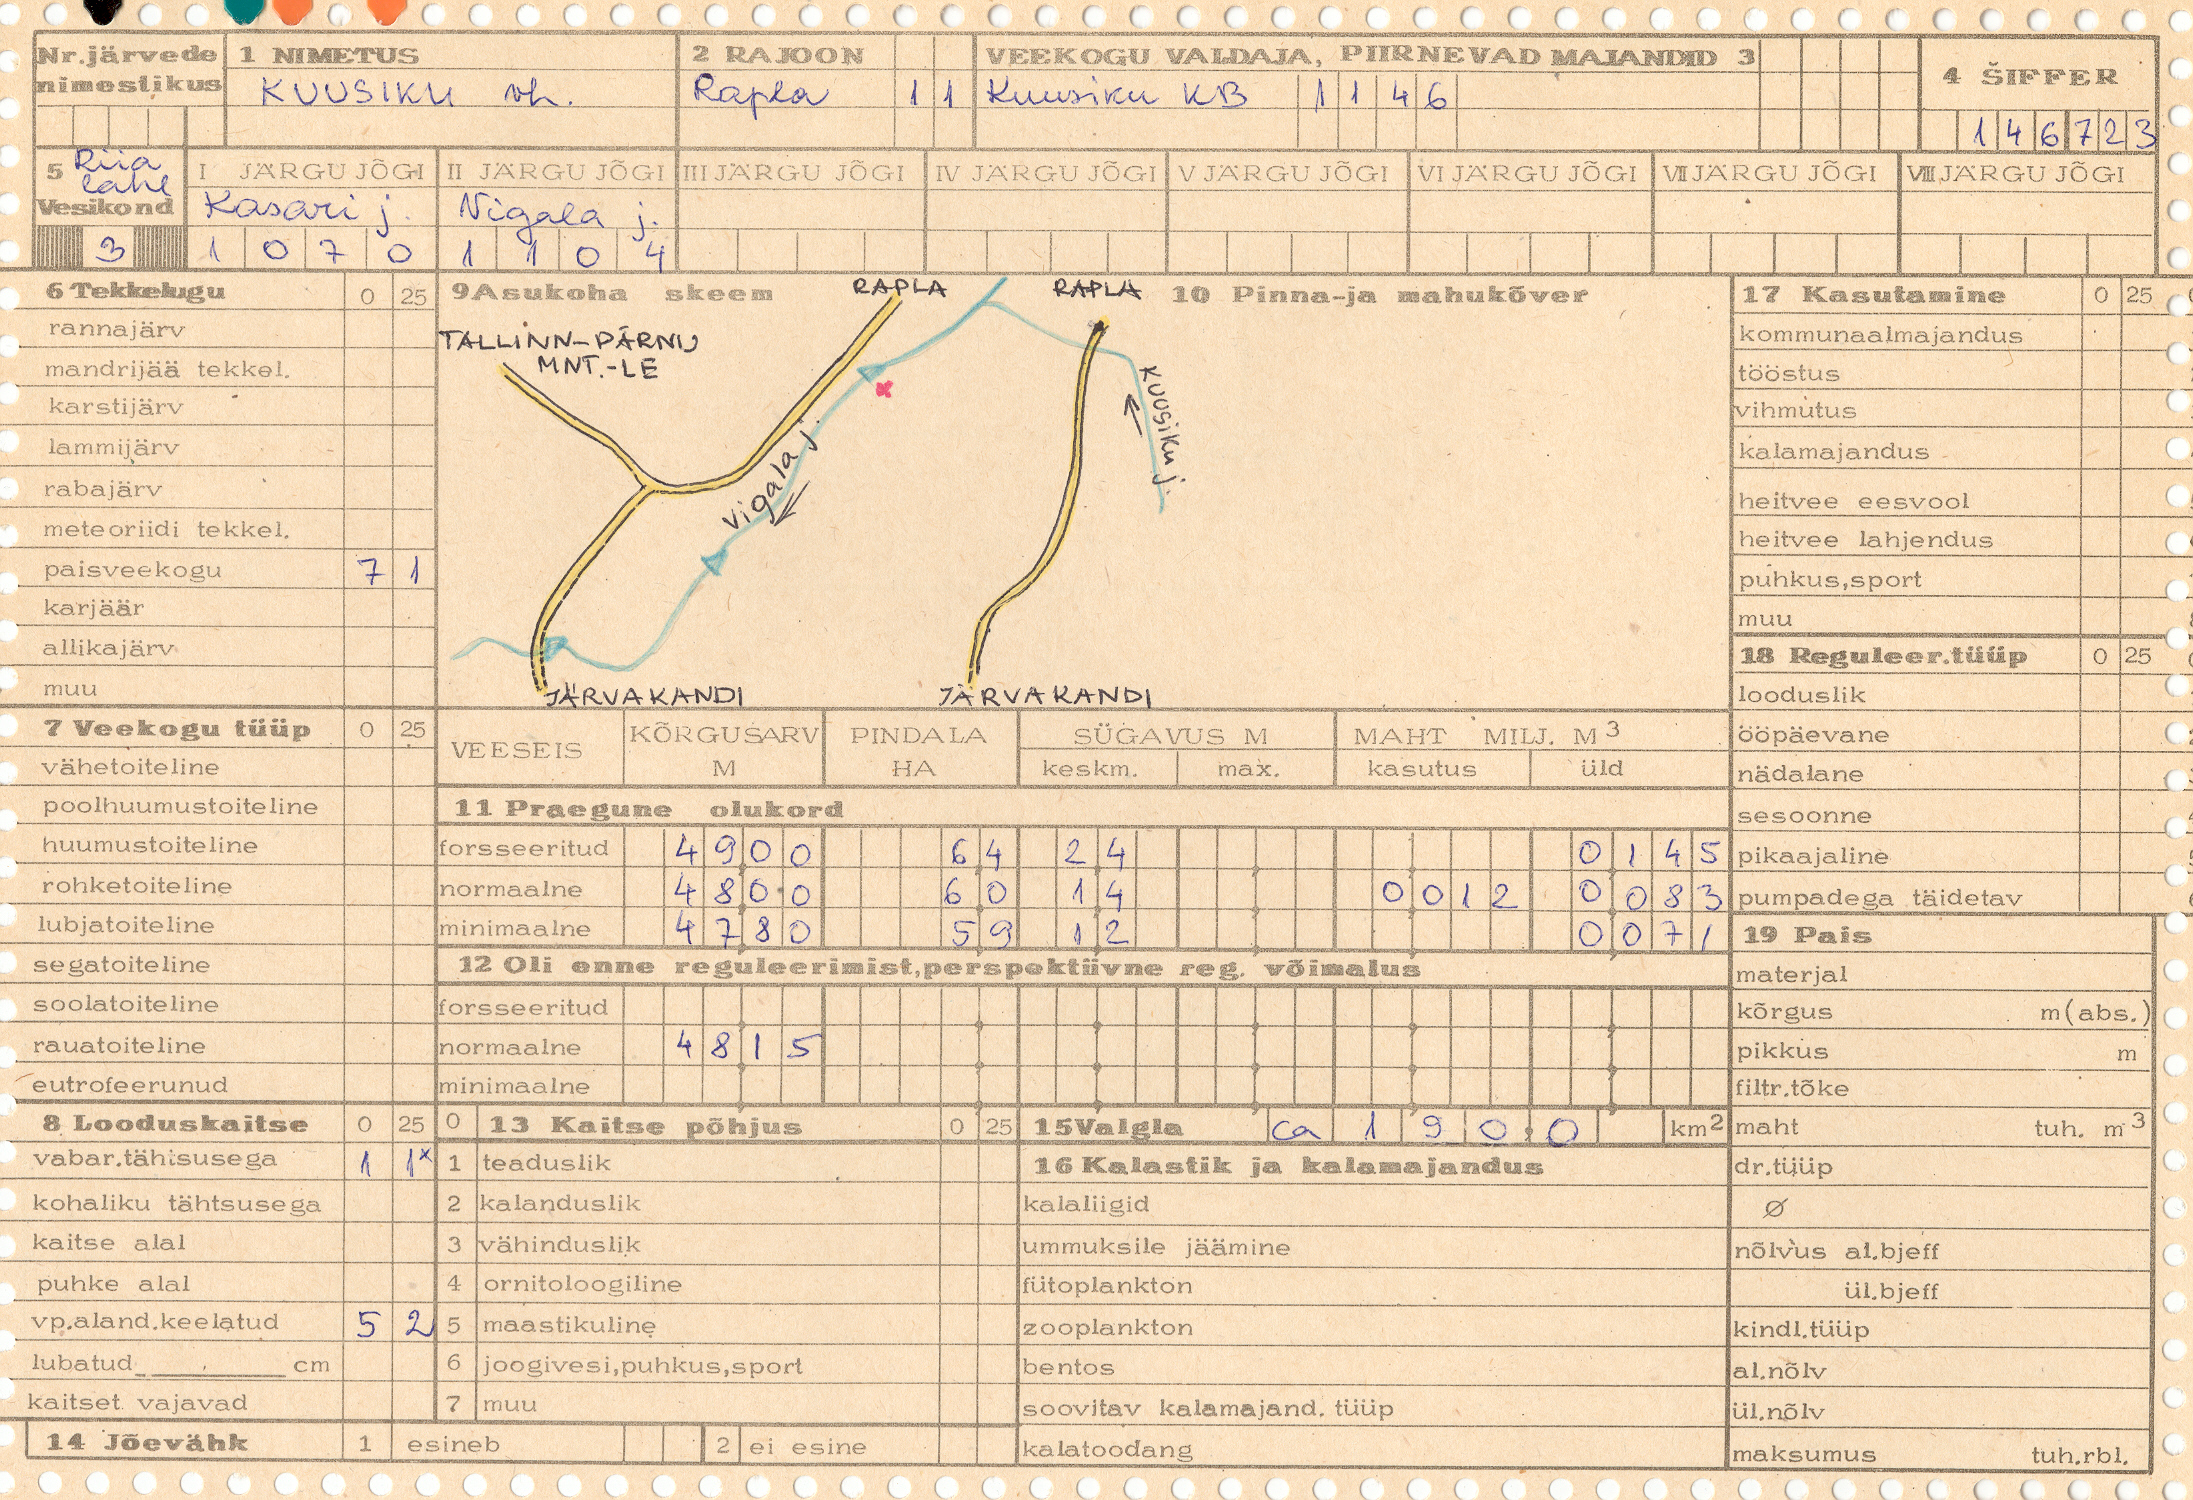 Nr.järvede nimestikus
1 NIMETUS
KUUSIKU vh.
2 RAJOON
Rapla 1 1
VEEKOGU VALDAJA, PIIRNEVAD MAJANDID 3
Kuusiku KB 1 1 4 6
4 ŠIFFER
1 4 6 7 2 3
5 Riia lahe Vesikond
3
I JÄRGU JÕGI
Kasari j.
1 0 7 0
II JÄRGU JÕGI
Vigala j.
1 1 0 4
III JÄRGU JÕGI
IV JÄRGU JÕGI
V JÄRGU JÕGI
VI JÄRGU JÕGI
VII JÄRGU JÕGI
VIII JÄRGU JÕGI
6 Tekkelugu 0 25
rannajärv
mandrijää tekkel.
karstijärv
lammijärv
rabajärv
meteoriidi tekkel.
paisveekogu 7 1
karjäär
allikajärv
muu
7 Veekogu tüüp 0 25
vähetoiteline
poolhuumustoiteline
huumustoiteline
rohketoiteline
lubjatoiteline
segatoiteline
soolatoiteline
rauatoiteline
eutrofeerunud
8 Looduskaitse 0 25
vabar.tähisusega 1 1x
kohaliku tähtsusega
kaitse alal
puhke alal
vp.aland.keelatud 5 2
lubatud cm
kaitset vajavad
14 Jõevähk 1 esineb 2 ei esine
9 Asukoha skeem
RAPLA
RAPLA
TALLINN-PÄRNU
MNT.-LE
Vigala j.
KUUSIKU j.
JÄRVAKANDI
JÄRVAKANDI
10 Pinna-ja mahukõver
VEESEIS
KÕRGUSARV M
PINDALA HA
SÜGAVUS M
keskm. max.
MAHT MILJ. M3
kasutus üld
11 Praegune olukord
forsseeritud 4 9 0 0 6 4 2 4 0 1 4 5
normaalne 4 8 0 0 6 0 1 4 0 0 1 2 0 0 8 3
minimaalne 4 7 8 0 5 9 1 2 0 0 7 1
12 Oli enne reguleerimist,perspektiivne reg. võimalus
forsseeritud
normaalne 4 8 1 5
minimaalne
0 13 Kaitse põhjus 0 25
1 teaduslik
2 kalanduslik
3 vähinduslik
4 ornitoloogiline
5 maastikuline
6 joogivesi,puhkus,sport
7 muu
15 Valgla ca 1 9 0 0 km2
16 Kalastik ja kalamajandus
kalaliigid
ummuksile jäämine
fütoplankton
zooplankton
bentos
soovitav kalamajand. tüüp
kalatoodang
17 Kasutamine 0 25
kommunaalmajandus
tööstus
vihmutus
kalamajandus
heitvee eesvool
heitvee lahjendus
puhkus,sport
muu
18 Reguleer.tüüp 0 25
looduslik
ööpäevane
nädalane
sesoonne
pikaajaline
pumpadega täidetav
19 Pais
materjal
kõrgus m(abs.)
pikkus m
filtr.tõke
maht tuh. m3
dr.tüüp
Ø
nõlvus al.bjeff
ül.bjeff
kindl.tüüp
al.nõlv
ül.nõlv
maksumus tuh.rbl.